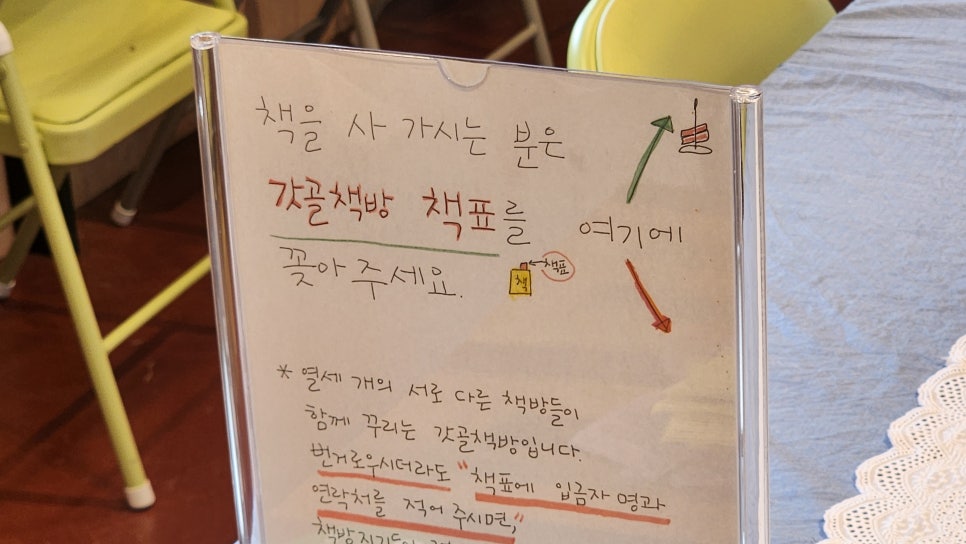 책을 사 가시는 분은
갓골책방 책표를
꽂아 주세요.
여기에
←책표
책
* 열세 개의 서로 다른 책방들이
함께 꾸리는 갓골책방입니다.
번거로우시더라도 "책표에 입금자 명과
연락처를 적어 주시면,"
책방지기들이